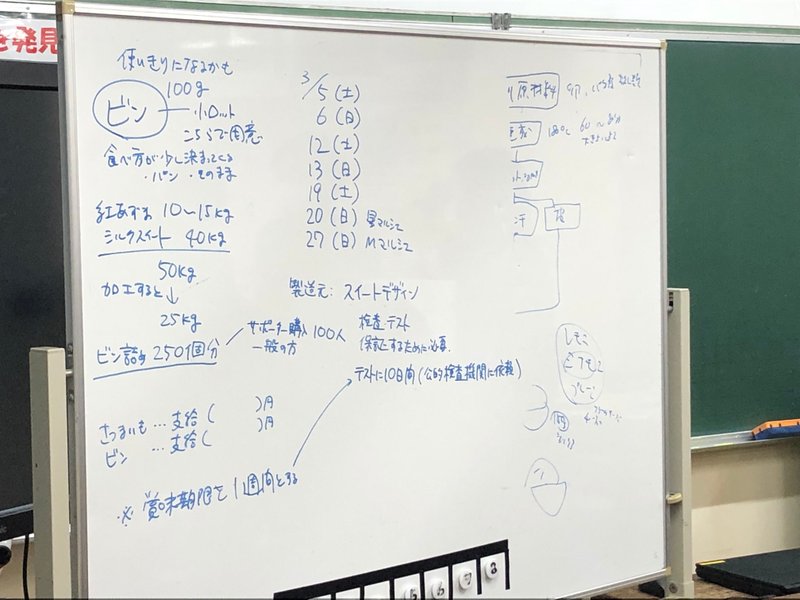 を発見
使いきりになるかも
100g
ビン
小ロット
こちらで用意
食べ方が少し決まってくる
・パン ・そのまま
紅あずま 10〜15kg
シルクスイート 40kg
50kg
加工すると↓
25kg
ビン詰め 250個分
サポーター購入
一般の方
100人
さつまいも … 支給( )円
ビン … 支給( )円
※ 賞味期限を1週間とする
3/5 (土)
6 (日)
12 (土)
13 (日)
19 (土)
20 (日) 星マルシェ
27 (日) Mマルシェ
製造元: スイートデザイン
検査テスト
保証するために必要.
テストに10日間(公的検査機関に依頼)
原材料
180℃
レモン
プレーン
6 7 8